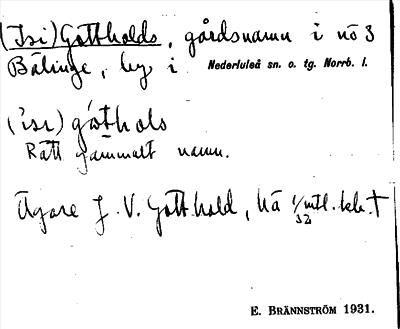 (Isi) Gottholds, gårdsnamn i nö 3
Bälinge, by i Nederluleå sn. o. tg. Norrb. l.
('isi) gåthols
Rätt gammalt namn.
Ägare J. V. Gotthold, hä 1/32 mtl.
E. BRÄNNSTRÖM 1931.